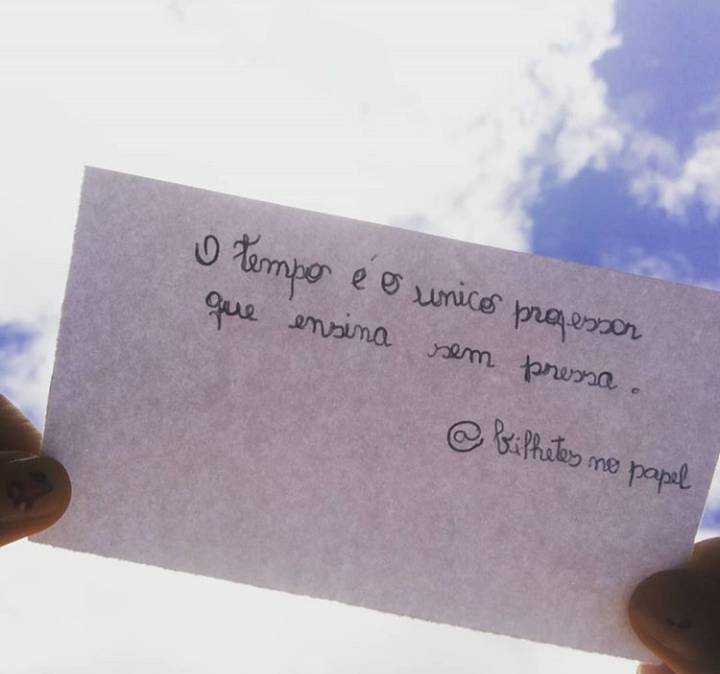 O tempo é o unico professor
que ensina sem pressa.
@bilhetes no papel